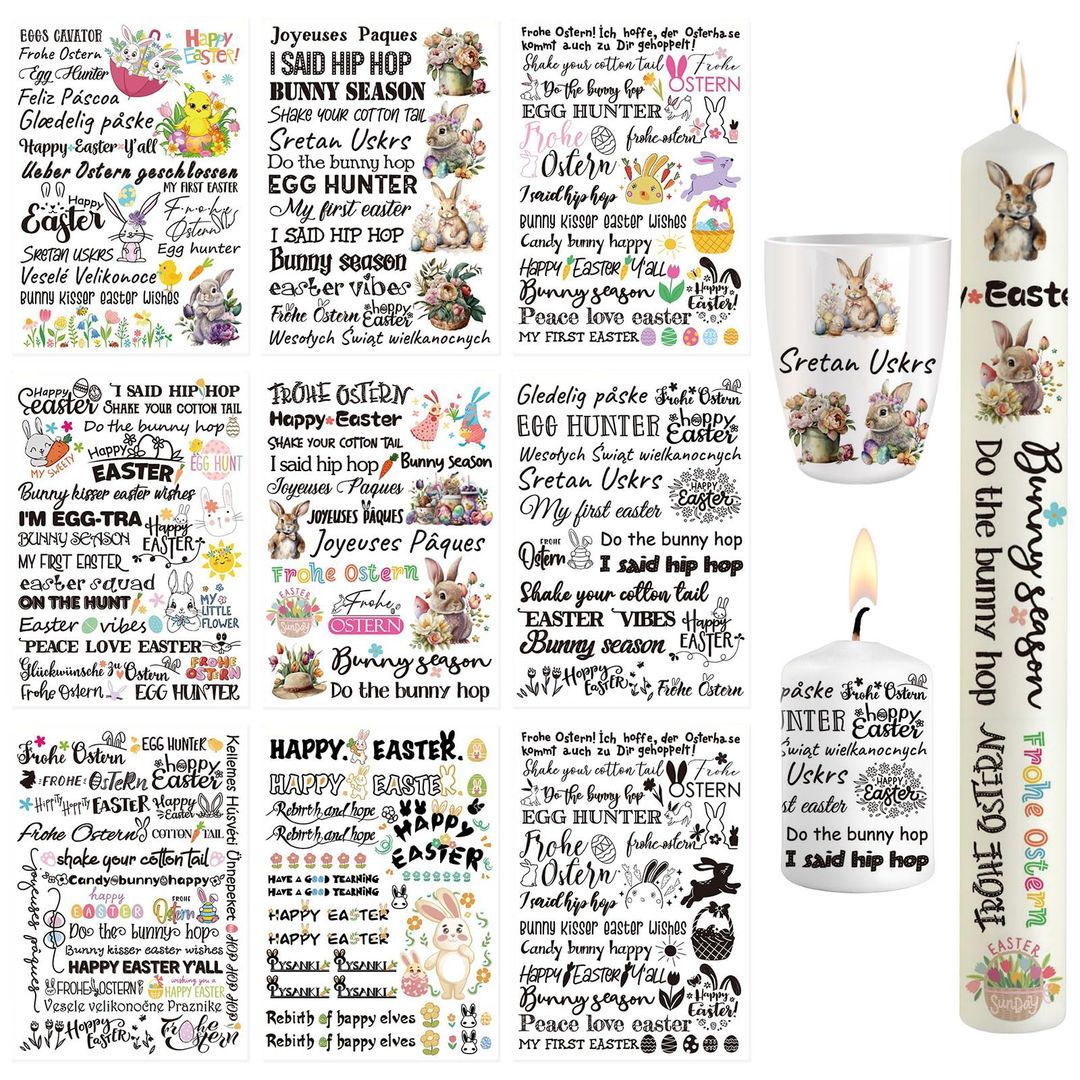 EGGS CAVATOR
Happy EASTER!
Frohe Ostern
Egg Hunter
Feliz Páscoa
Glædelig påske
Happy Easter Y'all
Ueber Ostern geschlossen
MY FIRST EASTER
Happy Easter
Frohe Ostern
SRETAN USKRS
Egg hunter
Veselé Velikonoce
Bunny kisser easter wishes
Joyeuses Paques
I SAID HIP HOP
BUNNY SEASON
SHAKE YOUR COTTON TAIL
Sretan Uskrs
Do the bunny hop
EGG HUNTER
My first easter
I SAID HIP HOP
Bunny season
easter vibes
Frohe Ostern
hoppy Easter
Wesołych Świąt wielkanocnych
Frohe Ostern! Ich hoffe, der Osterhase
kommt auch zu Dir gehoppelt!
Shake your cotton tail
Frohe OSTERN
Do the bunny hop
EGG HUNTER
Frohe Ostern
frohe ostern
I said hip hop
Bunny kisser easter wishes
Candy bunny happy
HAPPY EASTER Y'all
Bunny season
Happy Easter!
Peace love easter
MY FIRST EASTER
Happy easter
I SAID HIP HOP
SHAKE YOUR COTTON TAIL
Do the bunny hop
MY SWEETY
Happy EASTER
EGG HUNT
Bunny kisser easter wishes
I'M EGG-TRA
BUNNY SEASON
Happy EASTER
MY FIRST EASTER
easter squad
ON THE HUNT
MY LITTLE FLOWER
Easter vibes
PEACE LOVE EASTER
Glückwünsche zu Ostern
FROHE OSTERN
Frohe Ostern
EGG HUNTER
FROHE OSTERN
Happy Easter
SHAKE YOUR COTTON TAIL
I said hip hop
Bunny Season
Joyeuses Paques
JOYEUSES PÂQUES
Joyeuses Pâques
Frohe Ostern
EASTER SUNDAY
Frohe OSTERN
Bunny season
Do the bunny hop
Gledelig påske
Frohe Ostern
EGG HUNTER
hoppy Easter
Wesołych Świąt wielkanocnych
Sretan Uskrs
HAPPY Easter
My first easter
FROHE Ostern
Do the bunny hop
I said hip hop
Shake your cotton tail
EASTER VIBES
Happy EASTER
Bunny season
Hoppy EASTER
Frohe Ostern
Frohe Ostern
EGG HUNTER
FROHE OSTERN
hoppy Easter
Hippity Hoppity EASTER
Happy Easter
Frohe Ostern
COTTON TAIL
shake your cotton tail
Candy bunny happy
happy EASTER
FROHE Ostern
Do the bunny hop
Bunny kisser easter wishes
HAPPY EASTER Y'ALL
FROHE OSTERN
wishing you a HAPPY EASTER
Vesele velikonočne Praznike
Hoppy EASTER
Frohe Ostern
joyeuses pâques
Kellemes Húsvéti Ünnepeket
HOP HOP HOP
HAPPY. EASTER.
HAPPY EASTER
Rebirth and hope
Rebirth and hope
HAPPY EASTER
HAVE A GOOD TEARNING
HAVE A GOOD TEARNING
HAPPY EASTER
HAPPY EASTER
PYSANKI PYSANKI
PYSANKI PYSANKI
Rebirth of happy elves
Rebirth of happy elves
Frohe Ostern! Ich hoffe, der Osterhase
kommt auch zu Dir gehoppelt!
Shake your cotton tail
Frohe OSTERN
Do the bunny hop
EGG HUNTER
Frohe Ostern
frohe ostern
I said hip hop
Bunny kisser easter wishes
Candy bunny happy
HAPPY EASTER Y'all
Bunny season
Happy Easter!
Peace love easter
MY FIRST EASTER
Sretan Uskrs
påske Frohe Ostern
NTER hoppy Easter
Świąt wielkanocnych
Uskrs
HAPPY Easter
st easter
Do the bunny hop
I said hip hop
y Easte
Bunny season
Do the bunny hop
Frohe Ostern
FROHE OSTERN
EASTER SUNDAY